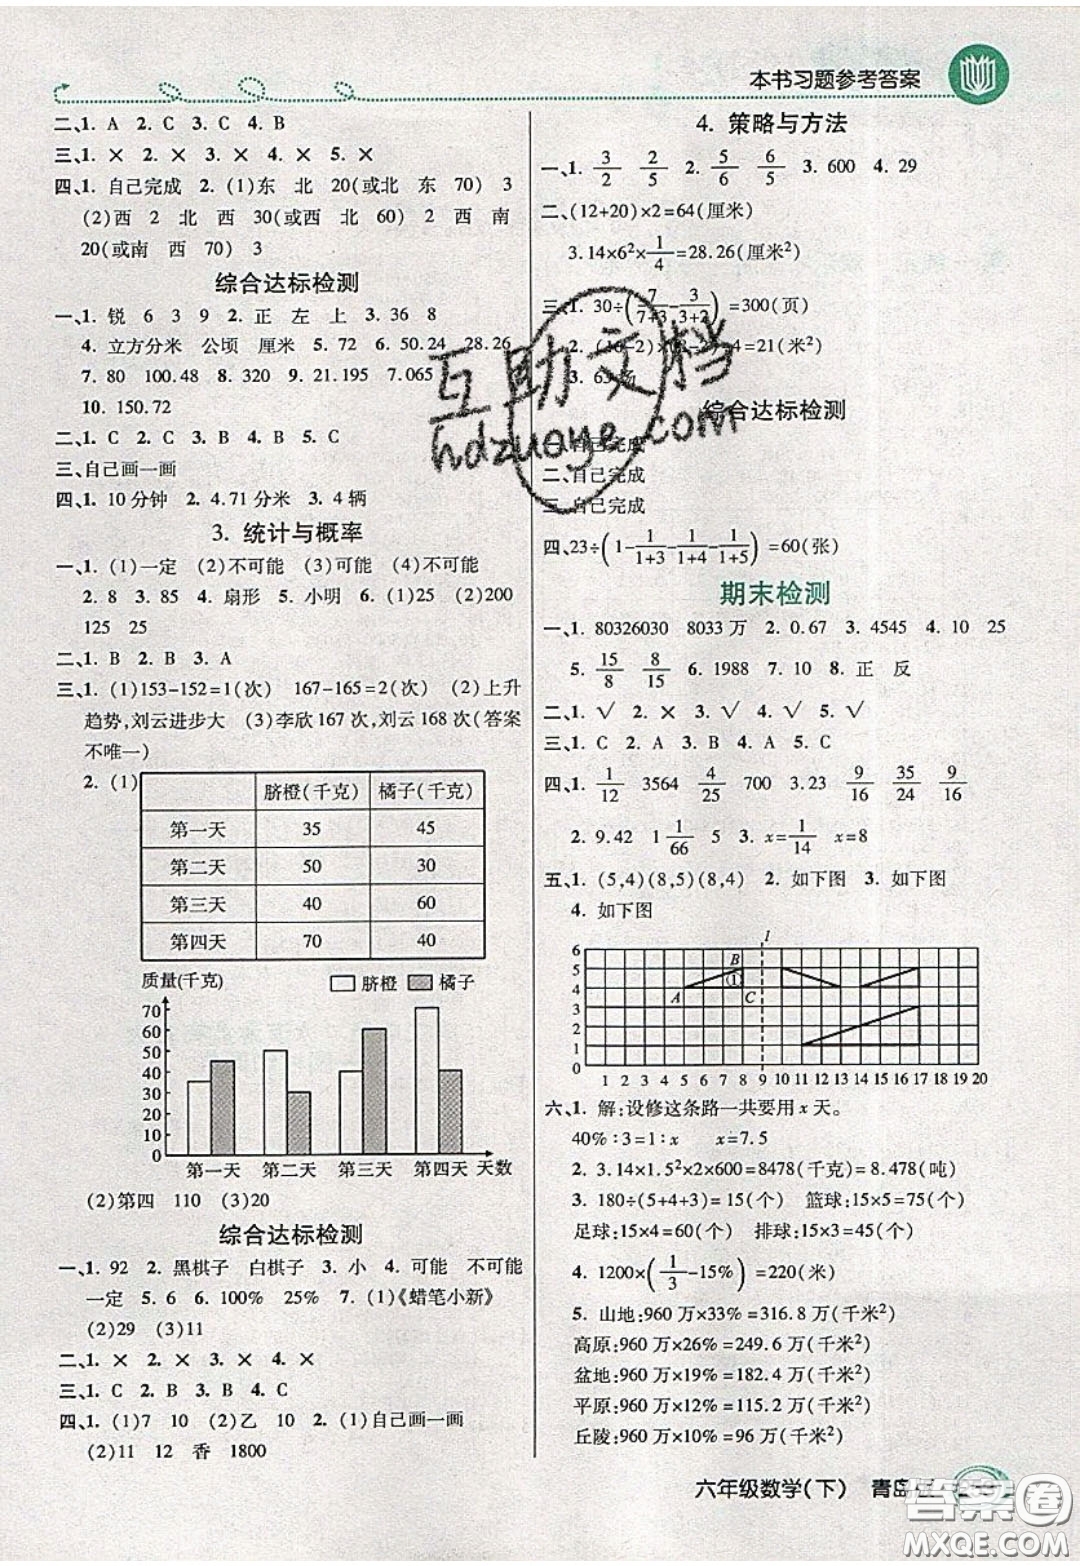 本书习题参考答案
二、1. A 2. C 3. C 4. B
三、1. × 2. × 3. × 4. × 5. ×
四、1. 自己完成 2. (1)东 北 20(或北 东 70) 3
(2)西 2 北 西 30(或西 北 60) 2 西 南
20(或南 西 70) 3
综合达标检测
一、1. 锐 6 3 9 2. 正 左 上 3. 36 8
4. 立方分米 公顷 厘米 5. 72 6. 50.24 28.26
7. 80 100.48 8. 320 9. 21.195 7.065
10. 150.72
二、1. C 2. C 3. B 4. B 5. C
三、自己画一画
四、1. 10 分钟 2. 4.71 分米 3. 4 辆
3. 统计与概率
一、1. (1)一定 (2)不可能 (3)可能 (4)不可能
2. 8 3. 85 4. 扇形 5. 小明 6. (1)25 (2)200
125 25
二、1. B 2. B 3. A
三、1. (1)153-152=1(次) 167-165=2(次) (2)上升
趋势,刘云进步大 (3)李欣 167 次,刘云 168 次(答案
不唯一)
2. (1)
脐橙(千克) 橘子(千克)
第一天 35 45
第二天 50 30
第三天 40 60
第四天 70 40
质量(千克) 脐橙 橘子
70
60
50
40
30
20
10
0
第一天 第二天 第三天 第四天 天数
(2)第四 110 (3)20
综合达标检测
一、1. 92 2. 黑棋子 白棋子 3. 小 4. 可能 不可能
一定 5. 6 6. 100% 25% 7. (1)《蜡笔小新》
(2)29 (3)11
二、1. × 2. × 3. × 4. ×
三、1. C 2. B 3. B 4. C
四、1. (1)7 10 (2)乙 10 2. (1)自己画一画
(2)11 12 香 1800
4. 策略与方法
一、1. 3/2 2/5 2. 5/6 6/5 3. 600 4. 29
二、(12+20)×2=64(厘米)
3.14×6²×1/4=28.26(厘米²)
三、1. 30÷(7/7+3-3/3+2)=300(页)
=21(米²)
综合达标检测
一、自己完成
二、自己完成
三、自己完成
四、23÷(1-1/1+3-1/1+4-1/1+5)=60(张)
期末检测
一、1. 80326030 8033 万 2. 0.67 3. 4545 4. 10 25
5. 15/8 8/15 6. 1988 7. 10 8. 正 反
二、1. √ 2. × 3. √ 4. √ 5. √
三、1. C 2. A 3. B 4. A 5. C
四、1. 1/12 3564 4/25 700 3.23 9/16 35/24 9/16
2. 9.42 1 1/66 5 3. x=1/14 x=8
五、1. (5,4)(8,5)(8,4) 2. 如下图 3. 如下图
4. 如下图
l
6
5
4
3
2
1
0
A B C ①
1 2 3 4 5 6 7 8 9 10 11 12 13 14 15 16 17 18 19 20
六、1. 解:设修这条路一共要用 x 天。
40%∶3=1∶x x=7.5
2. 3.14×1.5²×2×600=8478(千克)=8.478(吨)
3. 180÷(5+4+3)=15(个) 篮球:15×5=75(个)
足球:15×4=60(个) 排球:15×3=45(个)
4. 1200×(1/3-15%)=220(米)
5. 山地:960 万×33%=316.8 万(千米²)
高原:960 万×26%=249.6 万(千米²)
盆地:960 万×19%=182.4 万(千米²)
平原:960 万×12%=115.2 万(千米²)
丘陵:960 万×10%=96 万(千米²)
六年级数学(下) 青岛
互助文档
hdzuoye.com
答案圈
MXQE.COM